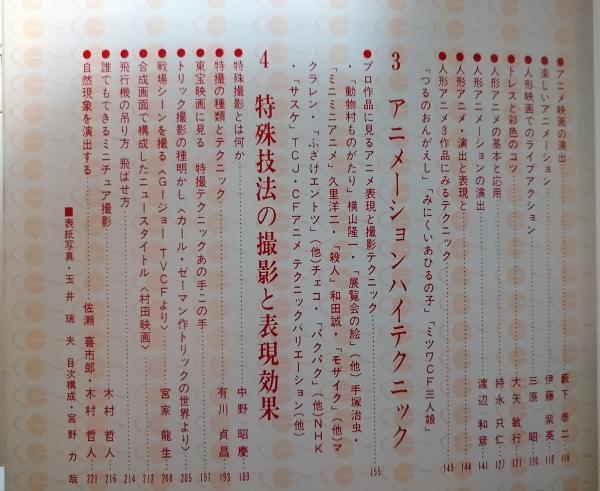 ●アニメ映画の演出……藪下 泰二 116
●楽しいアニメーション……伊藤 紫英 118
●人形映画でのライブアクション……三原 昭 120
●トレスと彩色のコツ……大矢 敏行 121
●人形アニメの基本と応用……持永 只仁 127
●人形アニメーションの演出……渡辺 和彦 141
●人形アニメ・演出と表現と……144
●人形アニメ3作品にみるテクニック……149
「つるのおんがえし」「みにくいあひるの子」「ミツワCF三人娘」
3 アニメーションハイテクニック
●プロ作品に見るアニメ表現と撮影テクニック……155
・「動物村ものがたり」横山隆一・「展覧会の絵」(他)手塚治虫・
「ミニミニアニメ」久里洋二・「殺人」和田誠・「モザイク」(他)マ
クラレン・「ふざけエントツ」(他)チェコ・「パクパク」(他)NHK
・「サスケ」TCJ・CFアニメ テクニックバリエーション(他)
4 特殊技法の撮影と表現効果
●特殊撮影とは何か……中野 昭慶 189
●特撮の種類とテクニック……有川 貞昌 193
●東宝映画に見る 特撮テクニックあの手この手……197
●トリック撮影の種明かし〈カール・ゼーマン作トリックの世界より〉……205
●戦場シーンを撮る〈G・ージョー TVCFより〉……宮家 龍生 208
●合成画面で構成したニュースタイトル〈村田映画〉……212
●飛行機の吊り方 飛ばせ方……214
●誰でもできるミニチュア撮影……木村 哲人 216
●自然現象を演出する……佐瀬 喜市郎・木村 哲人 221
■表紙写真・玉井 瑞夫 目次構成・宮野 力哉